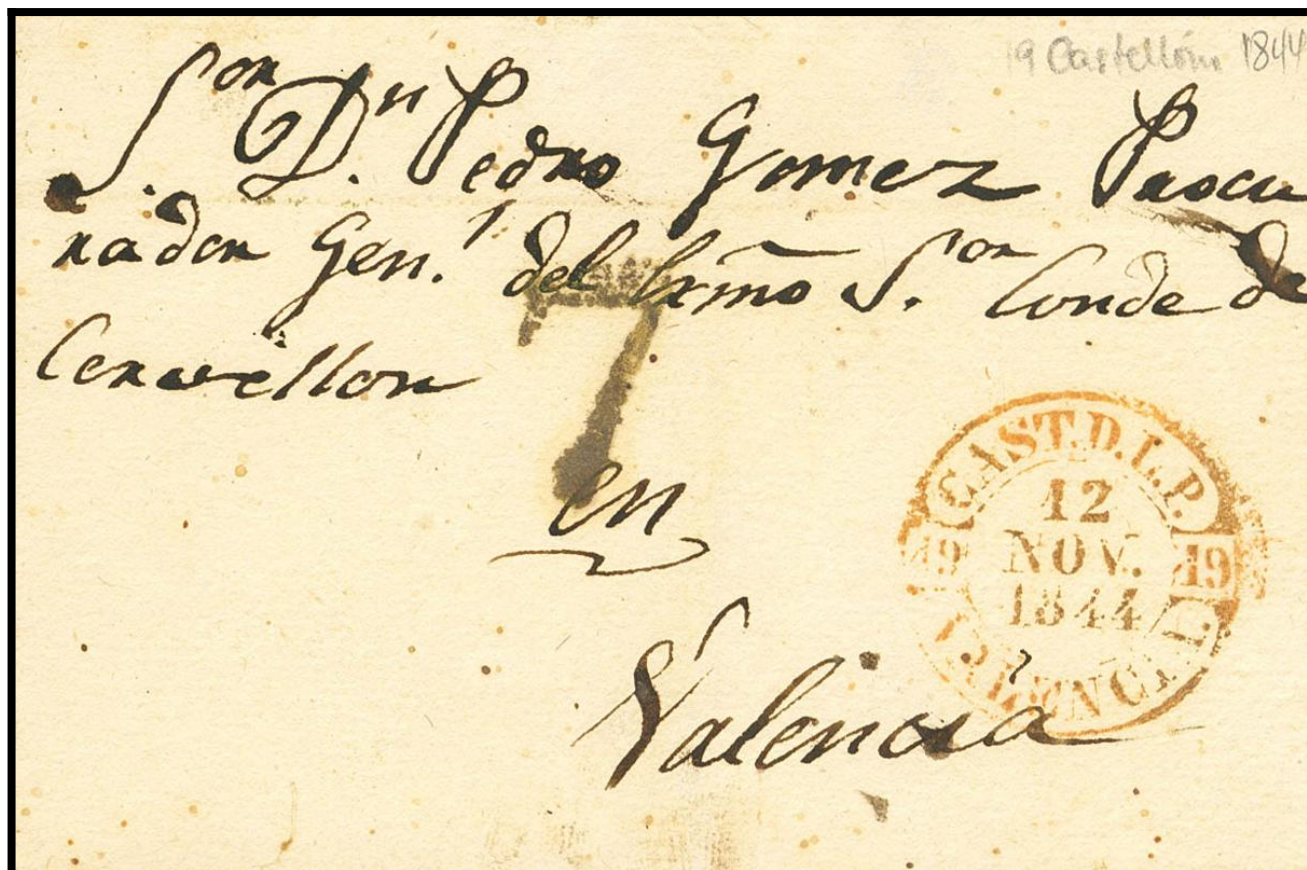 19 Castellón 1844
S.or D.n Pedro Gomez Procu
rador Gen.l del Exmo S.or Conde de
Cervellon
7
en
Valencia
CAST.D.L.P.
12
NOV.
19 19
1844